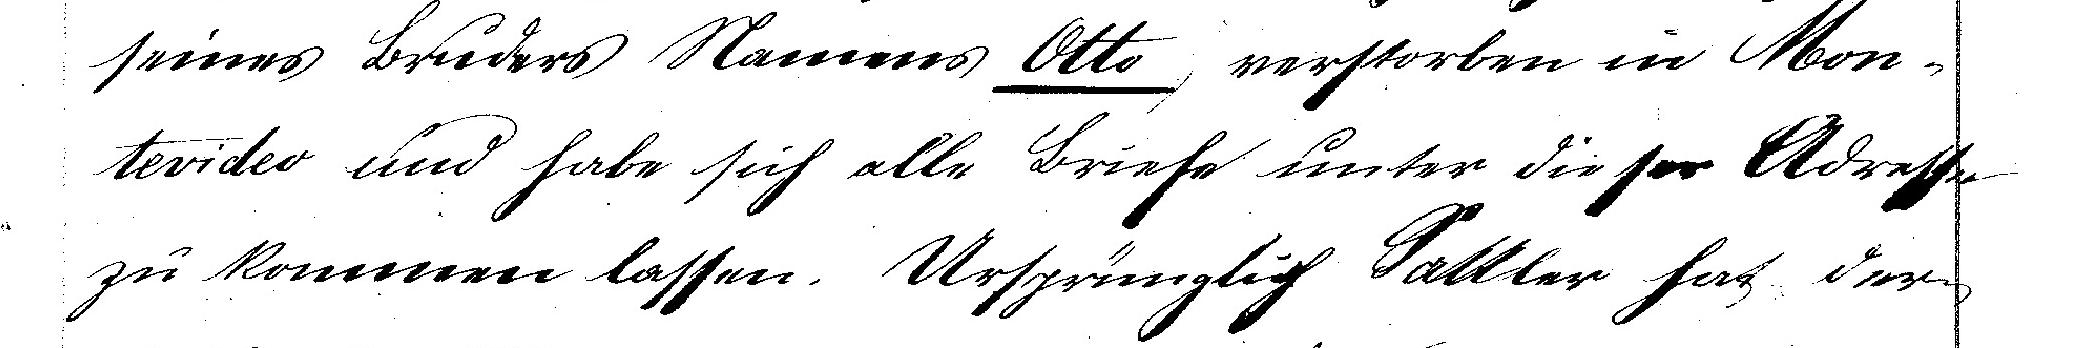 seines Bruders Namens Otto, verstorben in Mon-
tevideo und habe sich alle Briefe unter dieser Adresse
zu kommen lassen. Ursprünglich Sattler hat der